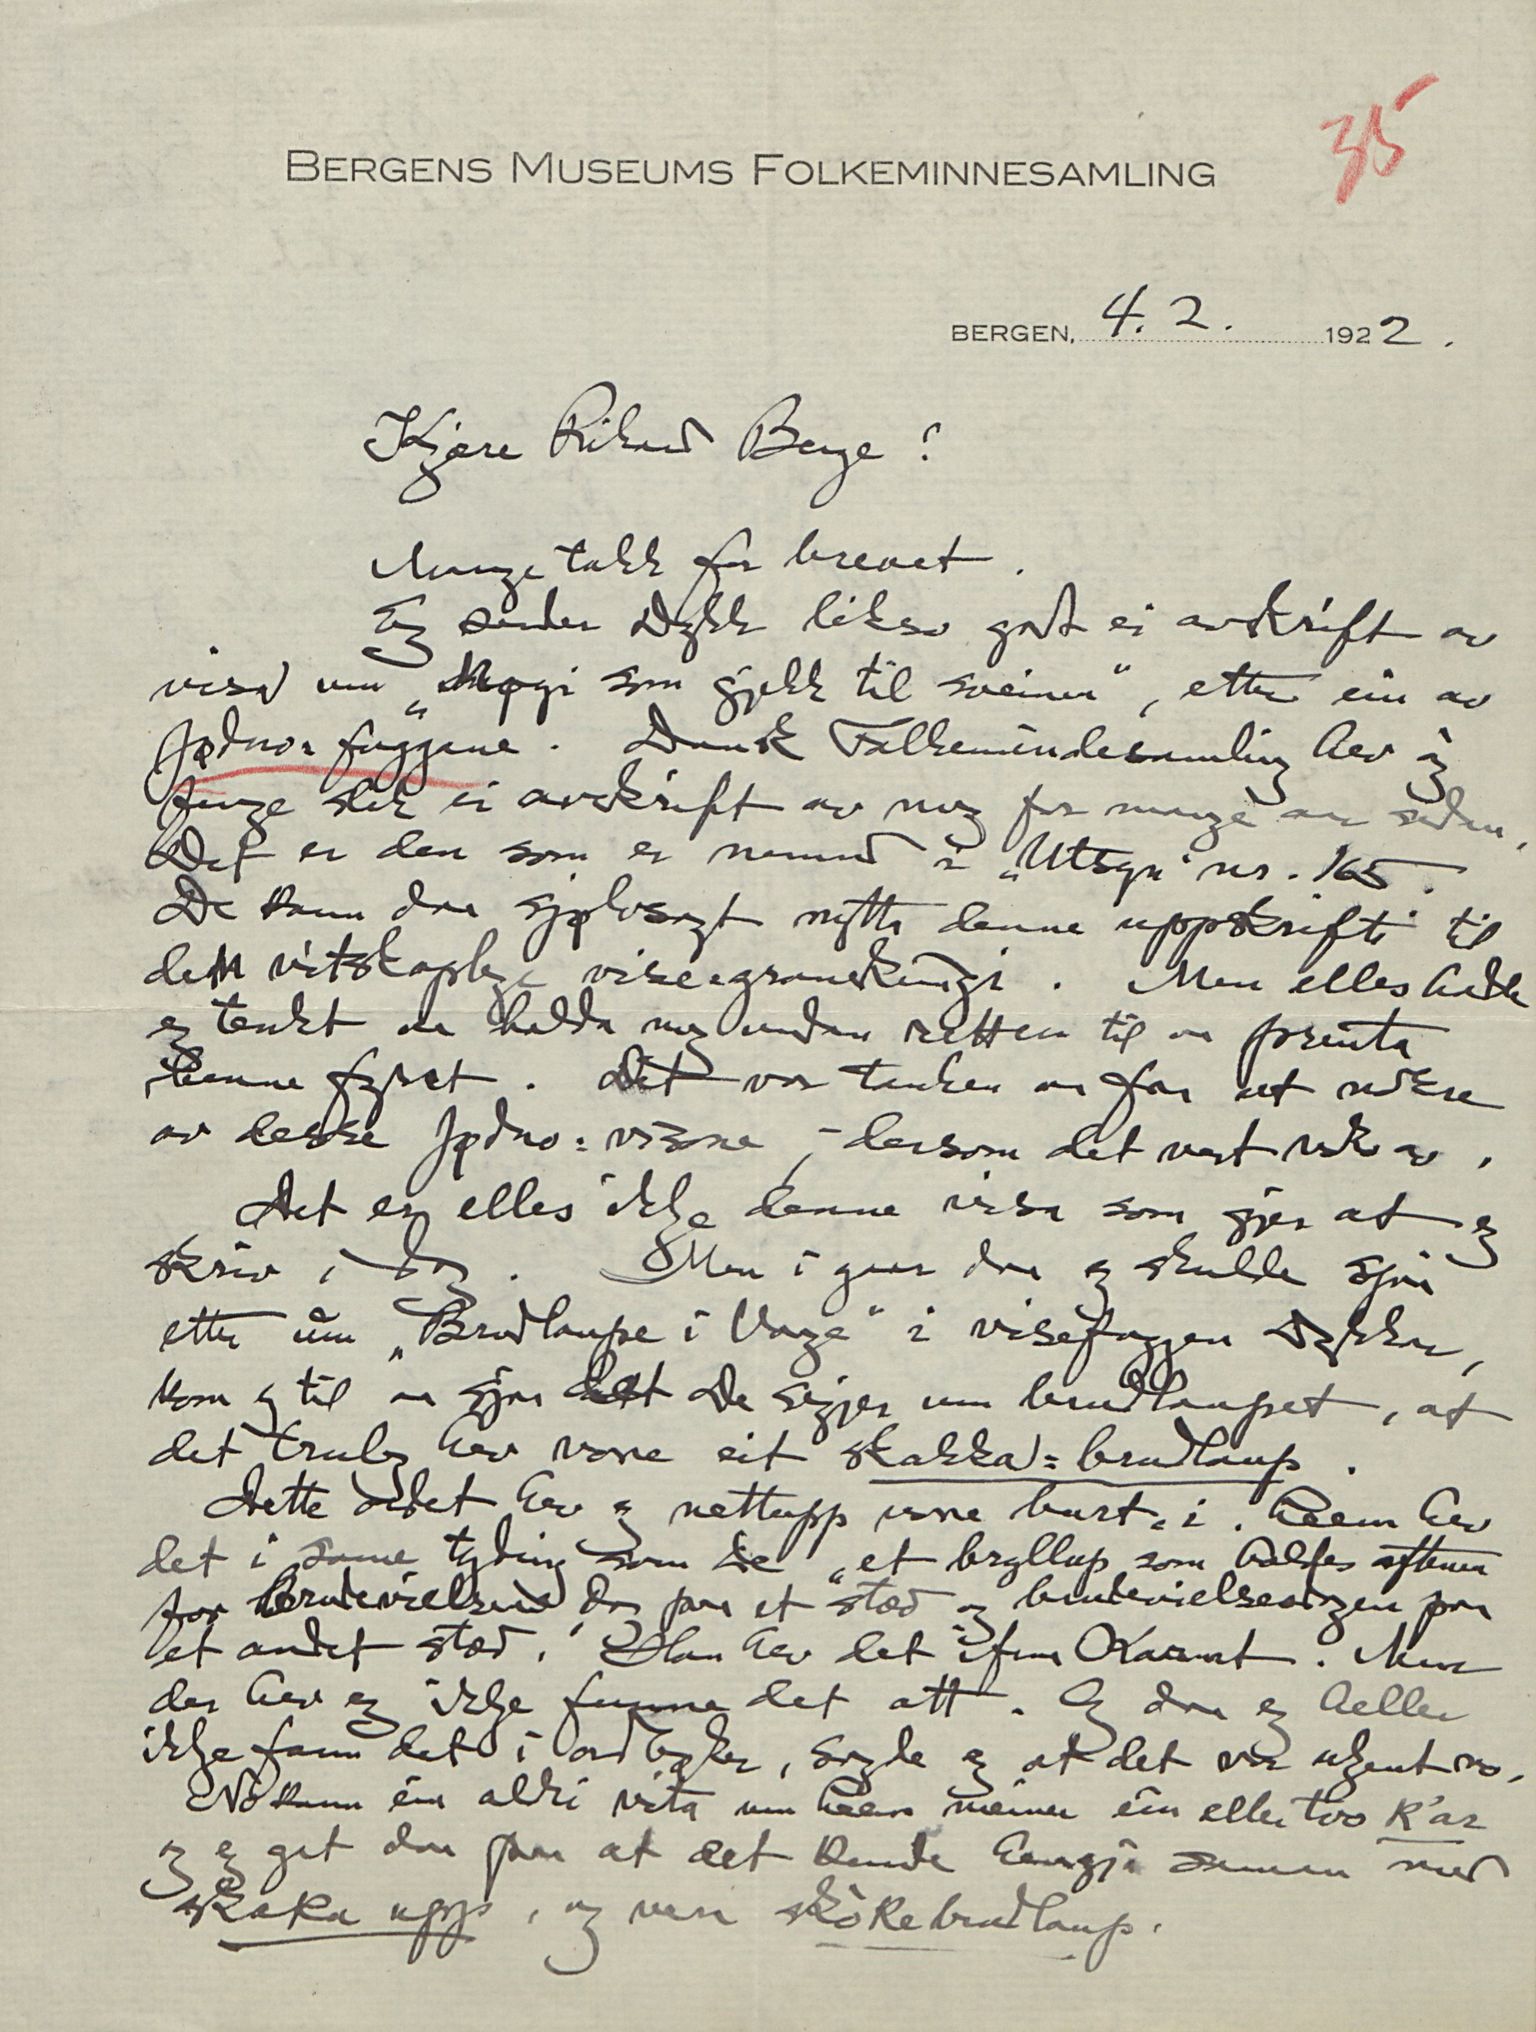 35
BERGENS MUSEUMS FOLKEMINNESAMLING
BERGEN, 4. 2. 1922.
Kjære Rikard Berge!
Mange takk for brevet.
Eg sender Dykk likso godt ei avskrift av
visa um "Møyi som gjekk til sveinen", etter ein av
Jødno-fuggane. Dansk Folkemindesamling hev òg
fenge slik ei avskrift av meg for mange aar sidan.
Det er den som er nemnd i "Utsyn" nr. 165.
De kann daa sjølvsagt nytta denne uppskrifti til
den vitskaplege visegranskingi. Men elles hadde
eg tenkt aa halda meg undan retten til aa prenta
henne fyrst. Det var tanken aa faa ut nokre
av desse Jødno-visone, - dersom det vert nok av.
Det er elles ikkje denne visa som gjer at eg
skriv i dag. Men i gaar daa eg skulde sjaa
etter um "Brudlaupe i Vaage" i visefuggen Dykkar,
kom eg til aa sjaa det De segjer um brudlaupet, at
det truleg hev vore eit skakka-brudlaup.
Dette ordet hev eg nettupp vore burt-i. Aasen hev
det i same tyding som De "et bryllup som holdes aftenen
for brudevielsens dag paa et sted og brudevielsesdagen paa
et andet sted." Han hev det ifraa Karmt. Men
der hev eg ikkje funne det att. Og daa eg heller
ikkje fann det i ordbøker, sagde eg at det var ukjent no.
No kann ein aldri vita um Aasen meiner ein eller two k'ar
og eg get daa paa at det kunde hengja saman med
skaka upp, og vera skòkebrudlaup.